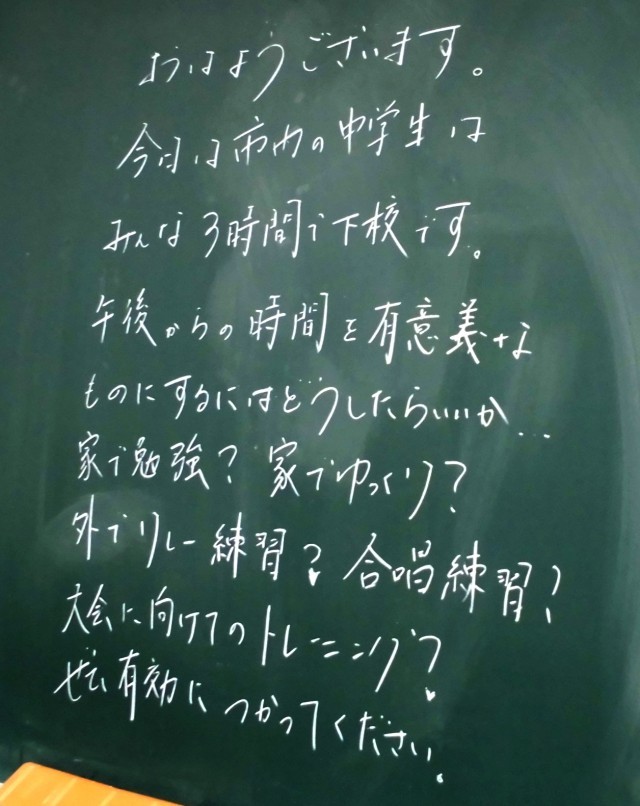 おはようございます。
今日は市内の中学生は
みんな3時間で下校です。
午後からの時間を有意義な
ものにするにはどうしたらいいか…
家で勉強？家でゆっくり？
外でリレー練習？合唱練習？
大会に向けてのトレーニング？
ぜひ有効につかってください。